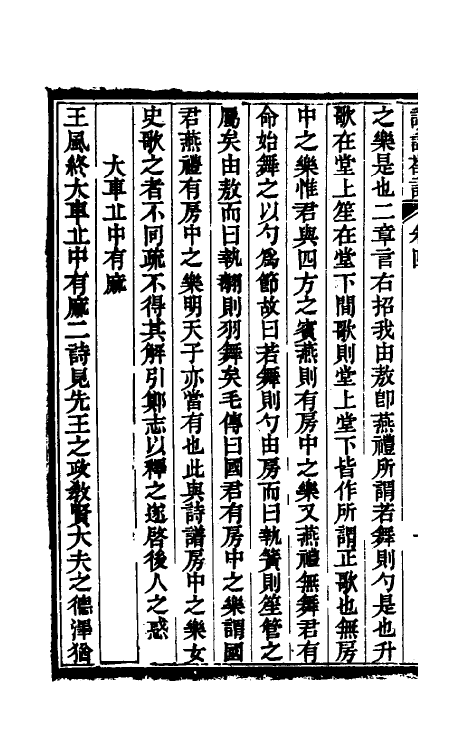 之樂是也二章言右招我由敖卽燕禮所謂若舞則勺是也升
歌在堂上笙在堂下間歌則堂上堂下皆作所謂正歌也無房
中之樂惟君與四方之賓燕則有房中之樂又燕禮無舞君有
命始舞之以勺爲節故曰若舞則勺由房而曰執簧則笙管之
屬矣由敖而曰執翿則羽舞矣毛傳曰國君有房中之樂謂國
君燕禮有房中之樂明天子亦當有也此與詩譜房中之樂女
史歌之者不同疏不得其解引鄭志以釋之遂啓後人之惑
大車丘中有麻
王風終大車丘中有麻二詩見先王之政教賢大夫之德澤猶